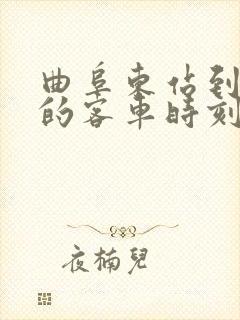 曲阜东佔到
的客車時刻
夜楠兒